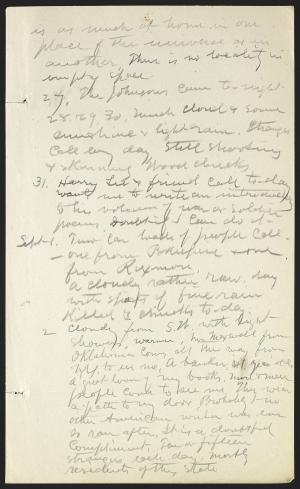 is as much at home in one
place of the universe as in
another. There is no locality in
empty space.
27, The Johnsons came to-night
28. 29, 30, Much cloud & some
sunshine & light rain. Strangers
call every day Still shooting
& skinning Woodchucks
31. Harry Lee & friend call to-day
want me to write an introduction
to his volume of war or soldier
poems. Doubtful if I can do it-
Sept 1. Two car loads of people call-
- one from Po'keepsie & one
from Roxmore.
A cloudy rather raw day
with spots of fine rain
Killed 2 chucks to-day
2 Cloudy from S.W. with light
showers, warmer, from
Oklahoma comes all the way from
N.Y. to see me, A banker 41 years old,
a great lover of my books. More & more
people come to see me. They wear
a path to my door Probably no
other American writer was ever
so run after. It is a doubtful
compliment, Ten or fifteen
strangers each day, mostly
residents of this State